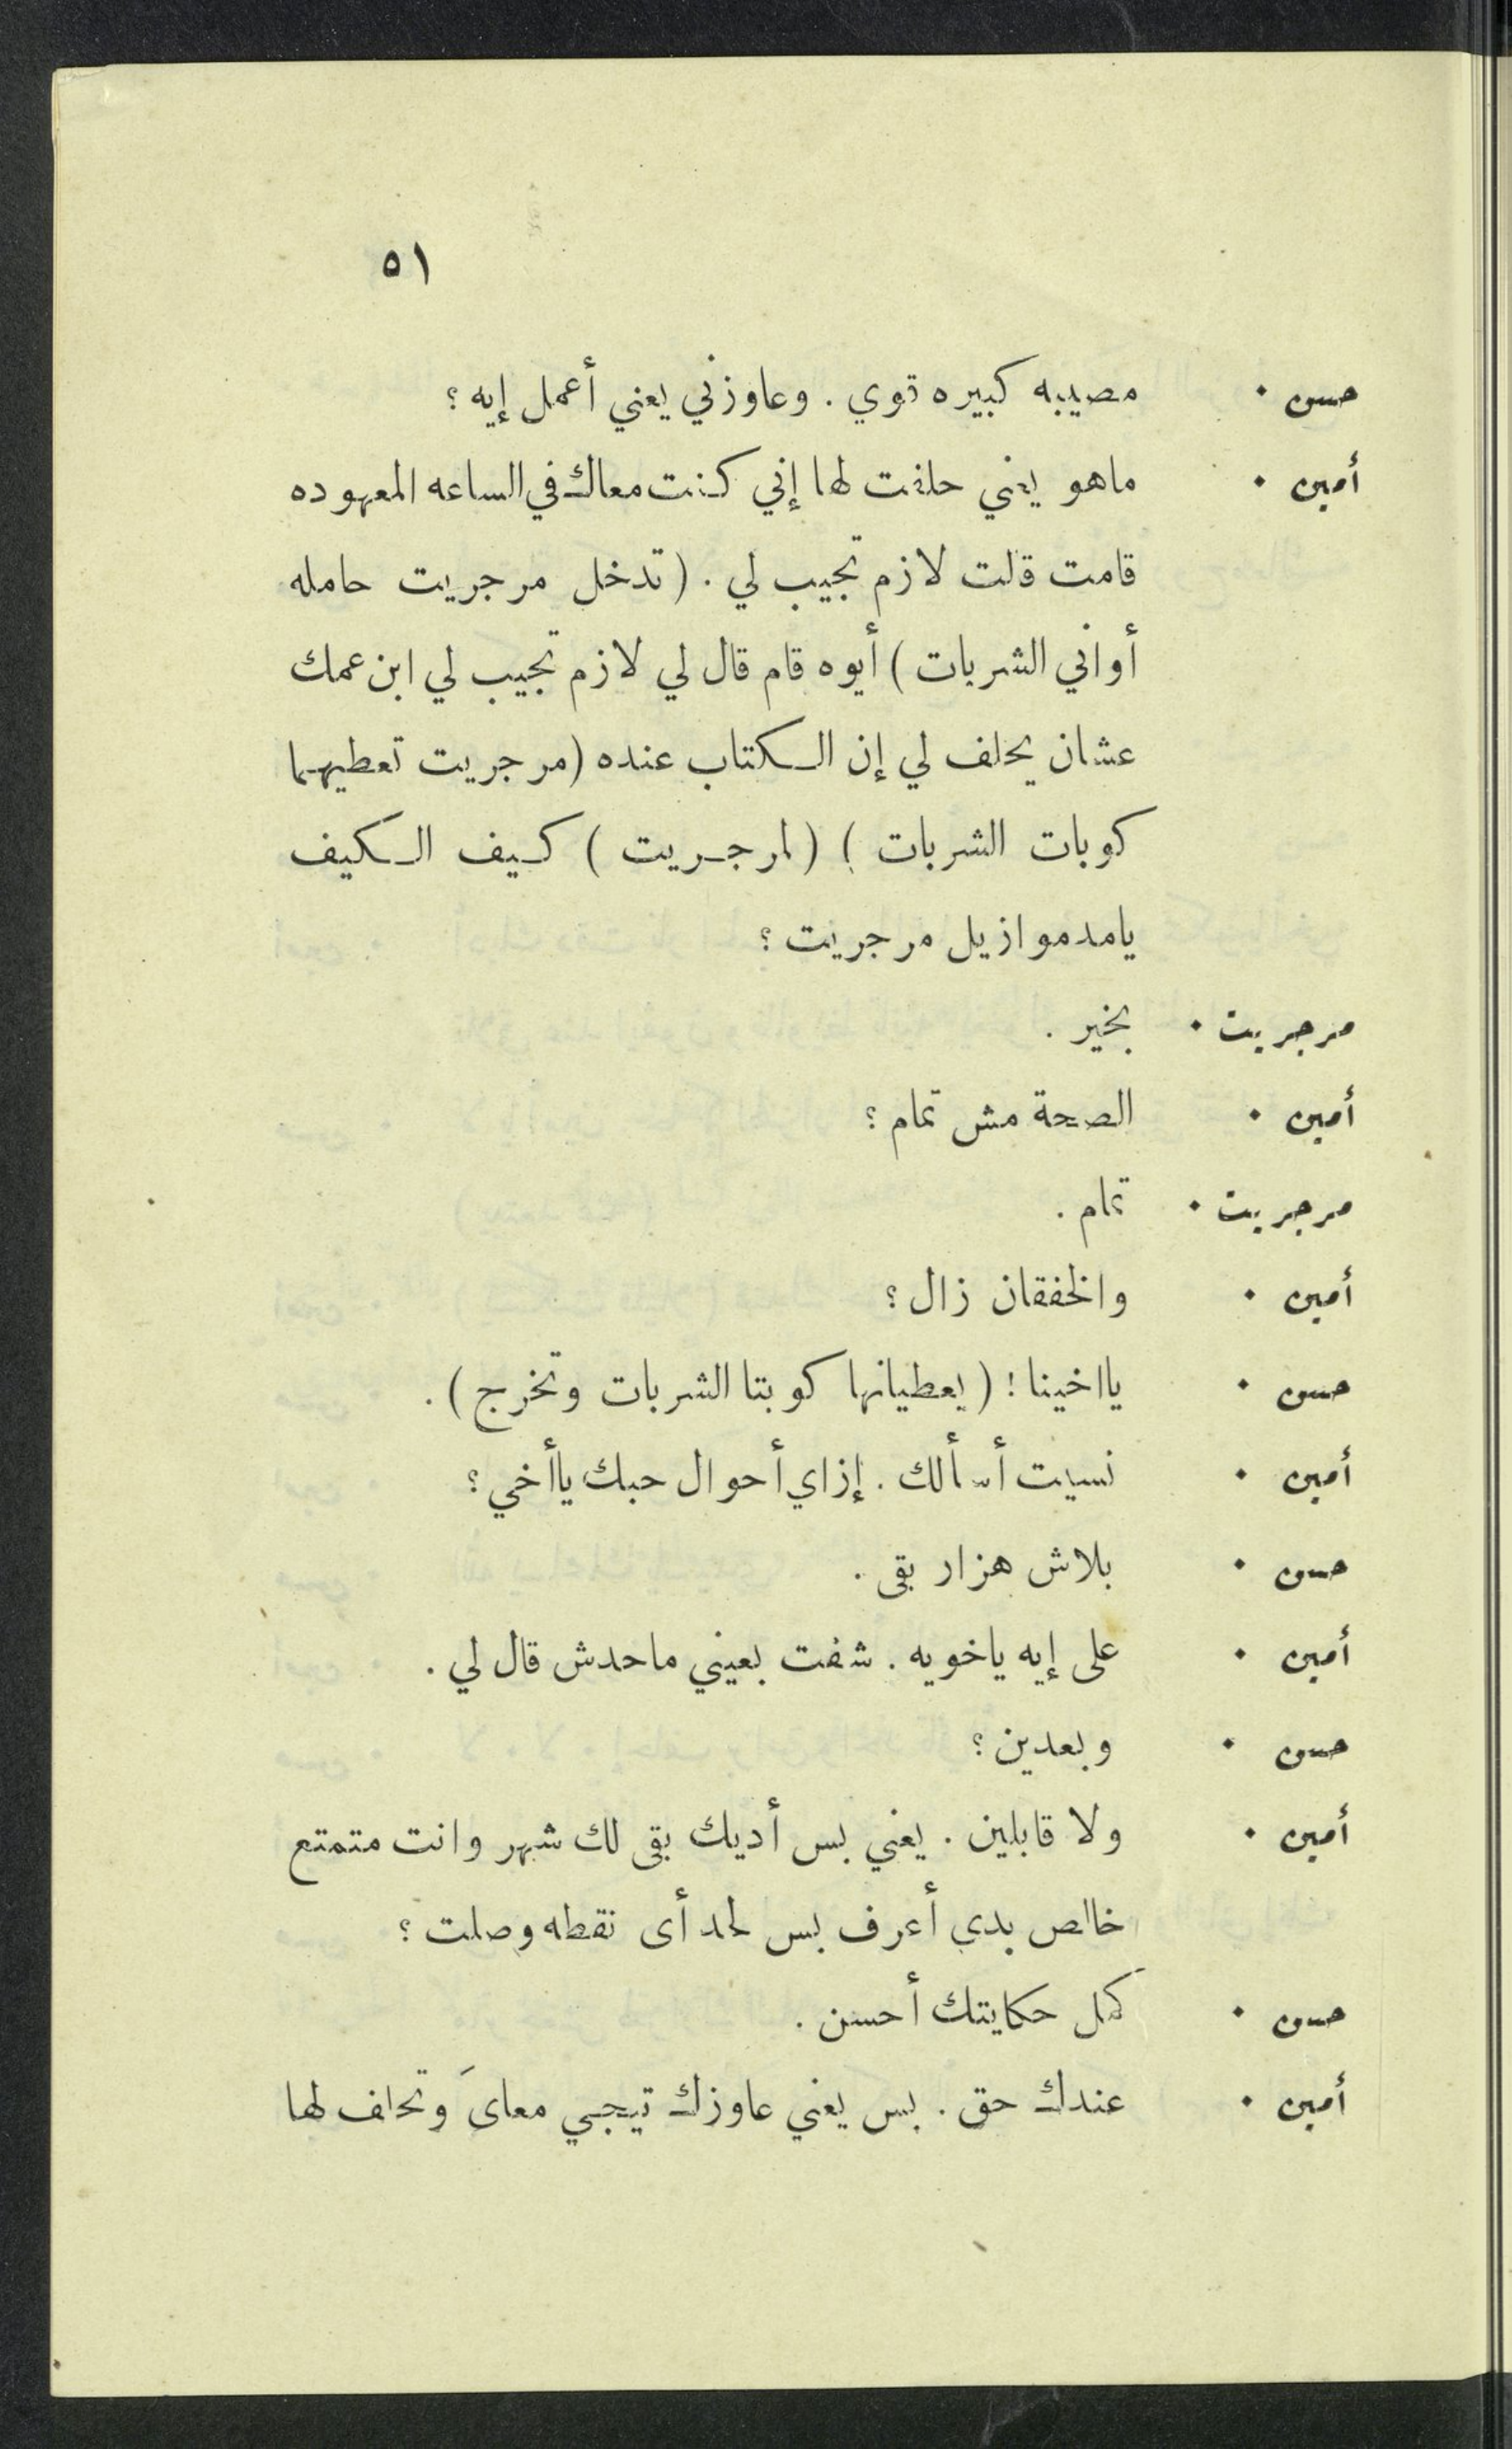 ٥١
حسن . مصيبه كبيره قوي . وعاوزني يعني أعمل إيه ؟
أمين . ماهو يعني حلفت لها إني كنت معاك في الساعه المعهوده
قامت قلت لازم تجيب لي . ( تدخل مرجريت حامله
أواني الشربات ) أيوه قام قال لي لازم تجيب لي ابن عمك
عشان يحلف لي إن الكتاب عنده (مرجريت تعطيهما
كوبات الشربات ) ( لمرجريت ) كيف الكيف
يامدموازيل مرجريت ؟
مرجريت . بخير .
أمين . الصحة مش تمام ؟
مرجريت . تمام .
أمين . والخفقان زال ؟
حسن . يااخينا ! ( يعطيانها كوبتا الشربات وتخرج ) .
أمين . نسيت أسألك . إزاي أحوال حبك ياأخي ؟
حسن . بلاش هزار بقى .
أمين . على إيه ياخويه . شفت بعيني ماحدش قال لي .
حسن . وبعدين ؟
أمين . ولا قابلين . يعني بس أديك بقى لك شهر وانت متمتع
خالص بدي أعرف بس لحد أى نقطه وصلت ؟
حسن . كمل حكايتك أحسن .
أمين . عندك حق . بس يعني عاوزك تيجي معاىَ وتحلف لها